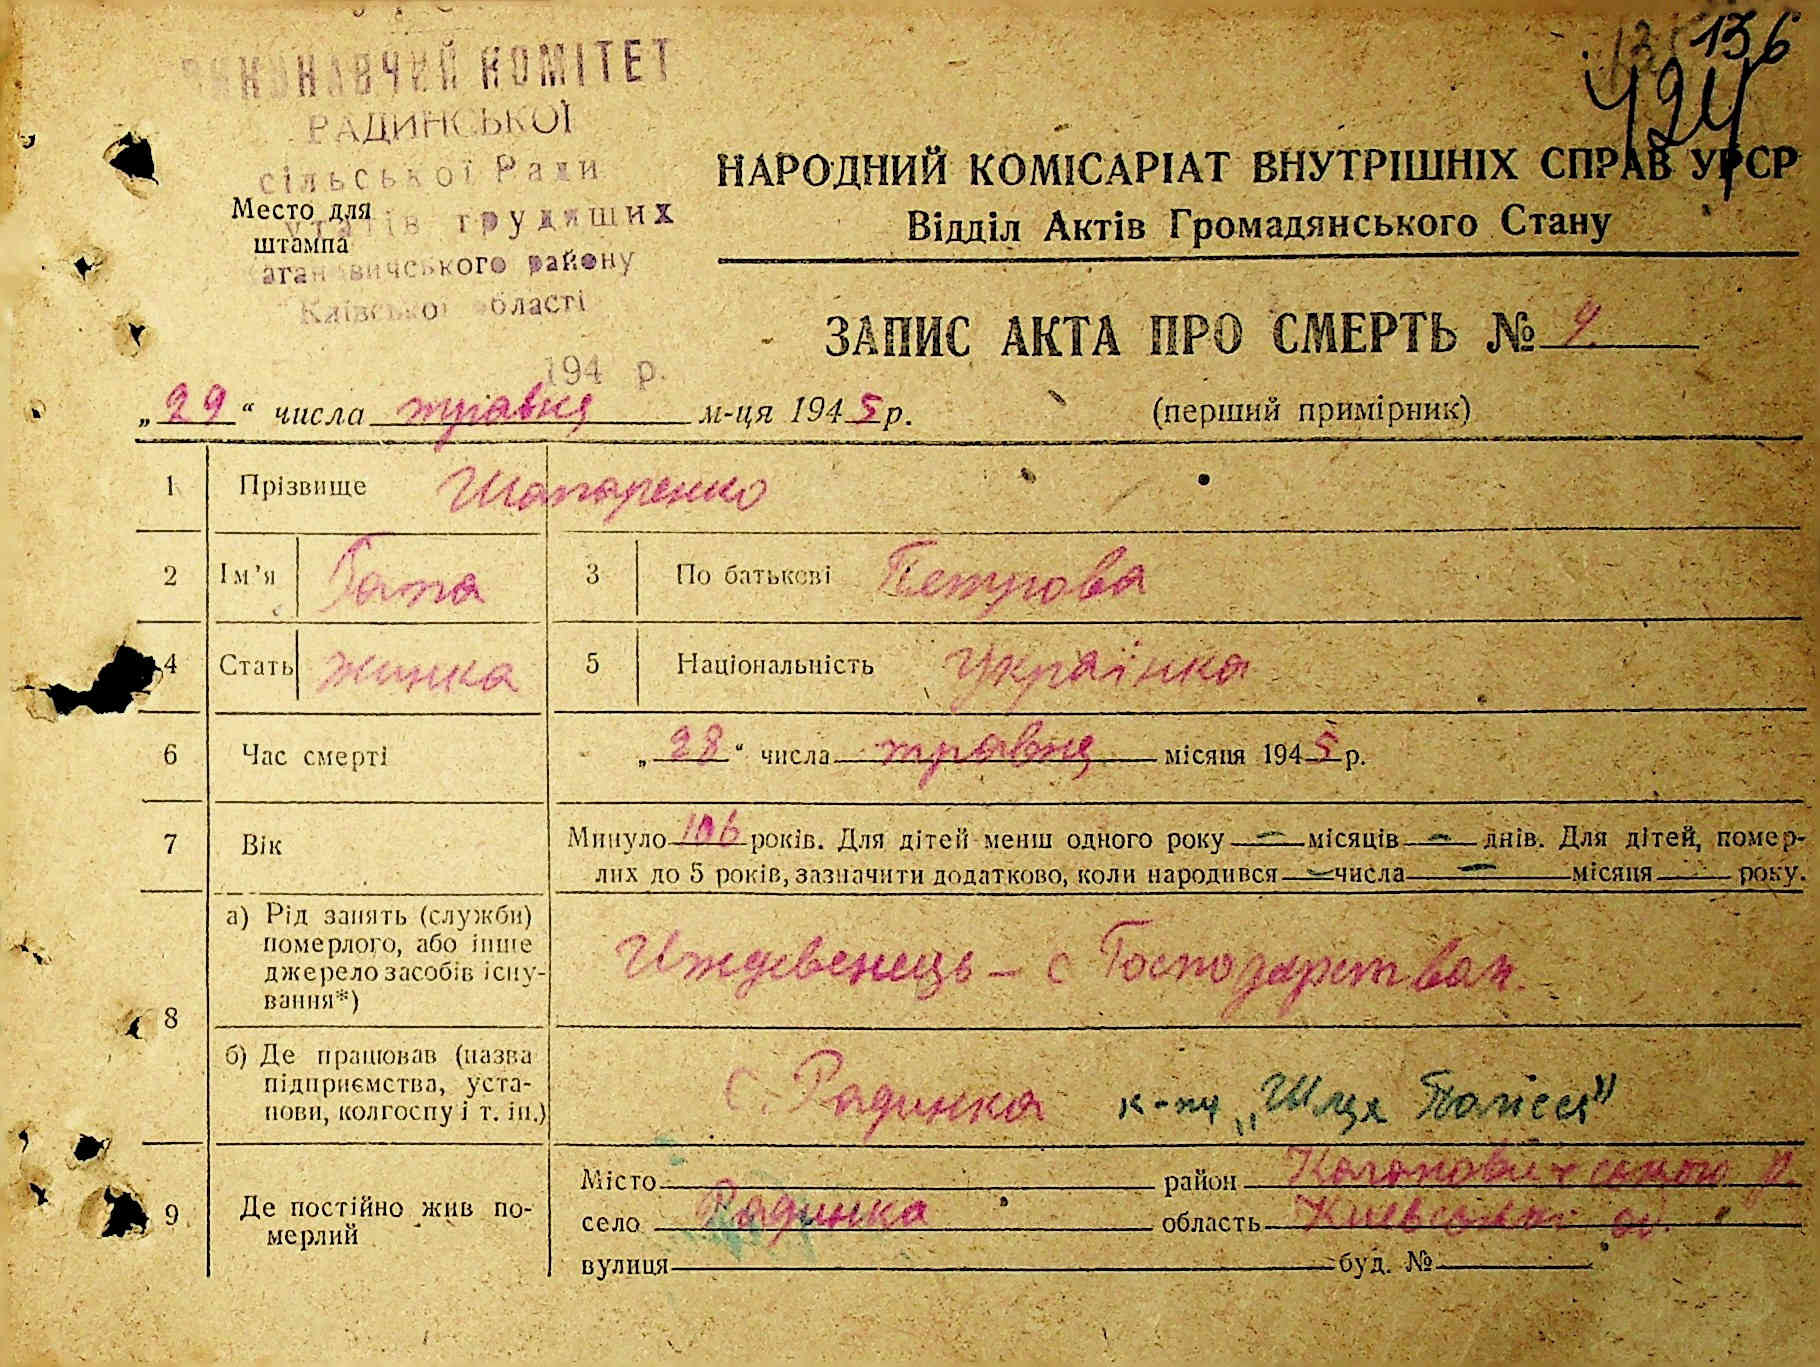 136
424
ВИКОНАВЧИЙ КОМІТЕТ
РАДИНСЬКОЇ
сільської Ради
утатів трудящих
Кагановичського району
Київської області
194 р.
Место для
штампа
НАРОДНИЙ КОМІСАРІАТ ВНУТРІШНІХ СПРАВ УРСР
Відділ Актів Громадянського Стану
ЗАПИС АКТА ПРО СМЕРТЬ №
„29“ числа травня м-ця 1945 р.
(перший примірник)
1 Прізвище Шапаренко
2 Ім'я Гапа 3 По батькові Петрова
4 Стать жинка 5 Національність Українка
6 Час смерті „28“ числа травня місяця 1945 р.
7 Вік Минуло 106 років. Для дітей менш одного року — місяців — днів. Для дітей, помер-
лих до 5 років, зазначити додатково, коли народився — числа — місяця — року.
8 а) Рід занять (служби)
померлого, або інше
джерело засобів існу-
вання*)
Иждевенець – с Господарством.
б) Де працював (назва
підприємства, уста-
нови, колгоспу і т. ін.)
с. Радинка к-пч „Шлях Полісся"
9 Де постійно жив по-
мерлий
Місто район Кагановичського р.
село Радинка область Киевської об.
вулиця буд. №